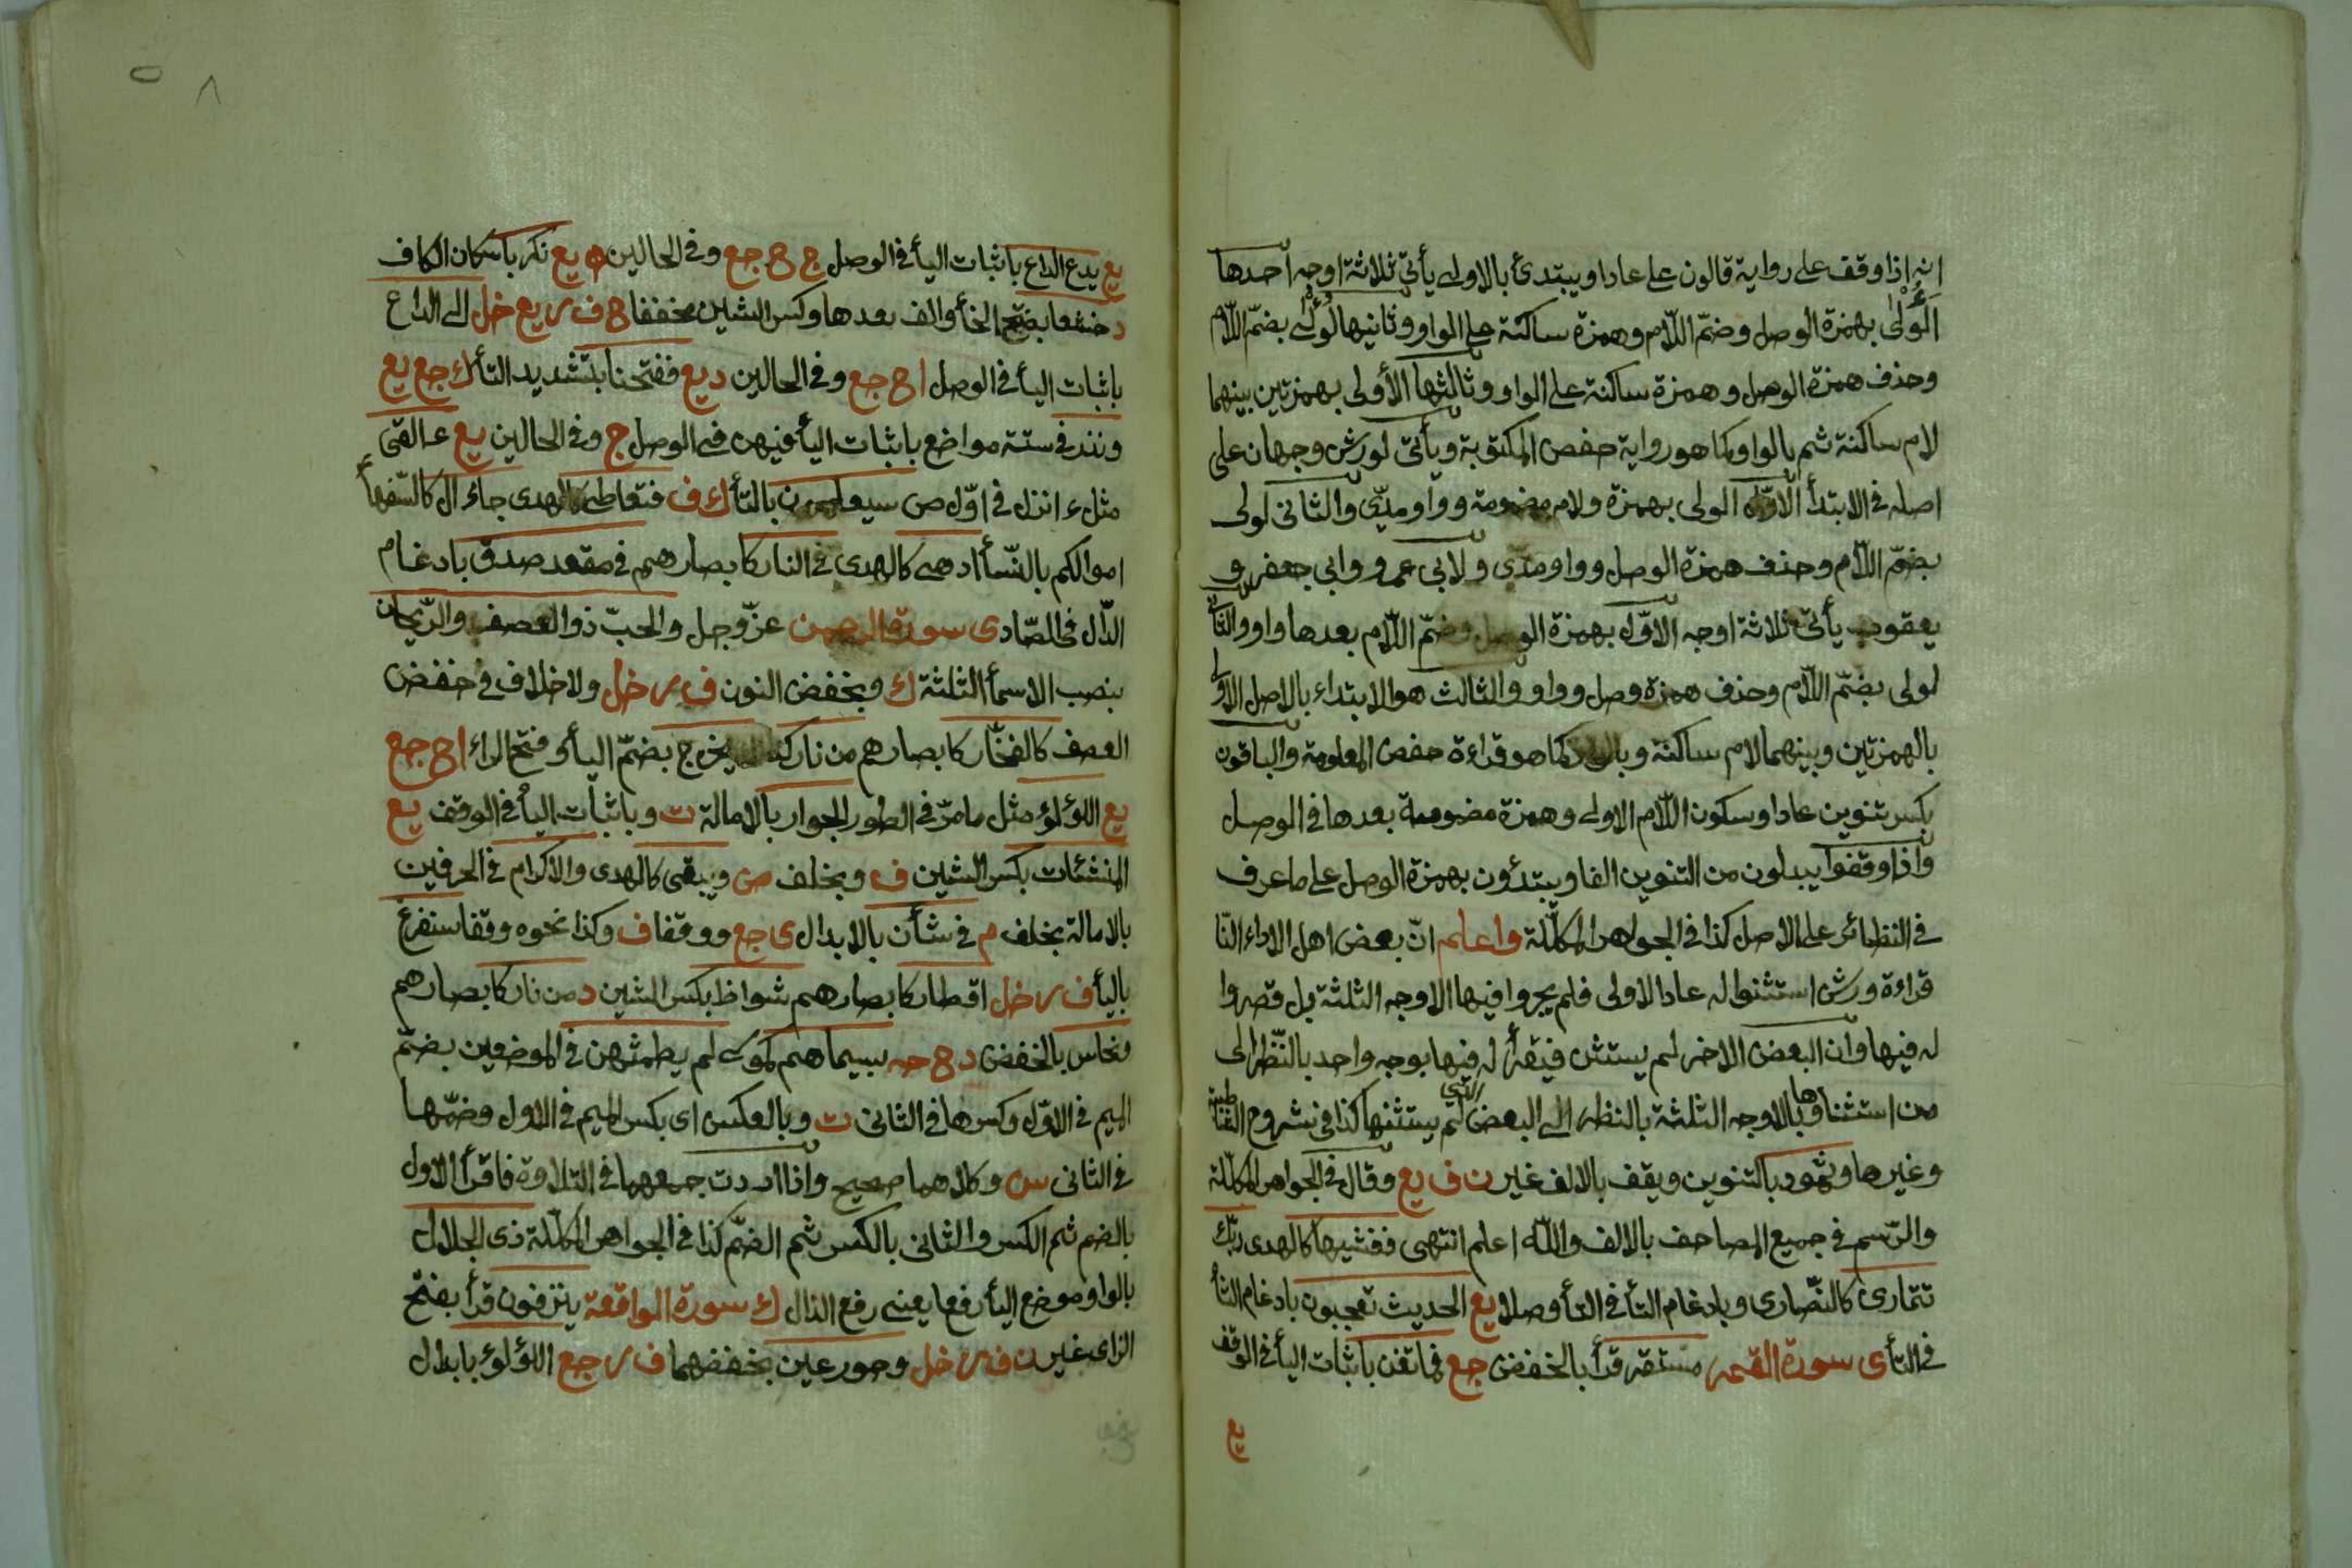 انه اذا وقف على رواية قالون على عادا ويبتدئ بالاولى يأتى ثلاثة اوجه احدها
اَلُؤْلىٰ بهمزة الوصل وضمّ اللّام وهمزة ساكنة على الواو وثانيها لُؤْلى بضمّ اللّام
وحذف همزة الوصل وهمزة ساكنة على الواو وثالثها الأولى بهمزتين بينهما
لام ساكنة ثم بالواو كما هو رواية حفص المكتوبة ويأتى لورش وجهان على
اصله فى الابتدأ الاوّل الولى بهمزة ولام مضمومة وواو مدّى والثانى لولى
بضمّ اللّام وحذف همزة الوصل وواو مدّى ولابى عمرو وابى جعفر و
يعقوب يأتى ثلاثة اوجه الاوّل بهمزة الوصل وضمّ اللّام بعدها واو والثانى
لولى بضمّ اللّام وحذف همزة وصل وواو والثالث هو الابتداء بالاصل الاولى
بالهمزتين وبينهما لام ساكنة وبالواو كما هو قراءة حفص المعلومة والباقون
بكسر تنوين عادا وسكون اللّام الاولى وهمزة مضمومة بعدها فى الوصل
واذا وقفوا يبدلون من التنوين الفا ويبتدؤن بهمزة الوصل على ما عرف
فى النظائر على الاصل كذا فى الجواهر المكلّلة واعلم انّ بعض اهل الاداء النّا
قراءة ورش استثنوا له عادا الاولى فلم يجروا فيها الاوجه الثلثة بل قصروا
له فيها وان البعض الاخر لم يستثن فيقرأ له فيها بوجه واحد بالنّظر الى
من استثناها وبالاوجه الثلثة بالنظر الى البعض الذي لم يستثنها كذا فى شروح الشاطبية
وغيرها وثمود بالتنوين ويقف بالالف غير ن ف يع وقال فى الجواهر المكلّلة
والرّسم فى جميع المصاحف بالالف واللّه اعلم انتهى فغشيها كالهدى ربّك
تتمارى كالنّصارى وبادغام التأ فى التأ وصلا يع الحديث تعجبون بادغام الثأ
فى التأ ى سورة القمر مستقر قرأ بالخفض جع فما تغن باثبات اليأ فى الوقف
يع
يع يدع الداع باثبات اليأ فى الوصل ج ح جع وفى الحالين ه يع نكر باسكان الكاف
د خشعا بفتح الخأ والف بعدها وكسر الشين مخففا ح ف ر يع خل الى الداع
باثبات اليأ فى الوصل ا ح جع وفى الحالين د يع ففتحنا بتشديد التأ ك جع يع
ونذر فى ستة مواضع باثبات اليأ فيهن فى الوصل ج وفى الحالين يع ءالقى
مثل ءانزل فى اوّل ص سيعلمون بالتأ ك ف فتعاطى كالهدى جاء ال كالسّفهأ
اموالكم بالنّسأ ادهى كالهدى فى النار كابصارهم فى مقعد صدق بادغام
الدّال فى الصّاد ى سورة الرحمن عزّ وجل والحبّ ذو العصف والرّيحان
بنصب الاسمأ الثلثة ك وبخفض النون ف ر خل ولا خلاف فى خفض
العصف كالفخّار كابصارهم من نار يخرج بضمّ اليأ وفتح الراء ا ح جع
يع اللؤلؤ مثل ما مرّ فى الطور الجوار بالامالة ت وباثبات اليأ فى الوقف يع
المنشئات بكسر الشين ف وبخلف ص ويبقى كالهدى والاكرام فى الحرفين
بالامالة بخلف م فى شأن بالابدال ى جع ووقفا ف وكذا نحوه وقفا سنفرغ
باليأ ف ر خل اقطار كابصارهم شواظ بكسر الشين د من نار كابصارهم
ونحاس بالخفض د ح حه بسيماهم كموسى لم يطمثهن فى الموضعين بضمّ
الميم فى الاوّل وكسرها فى الثانى ت وبالعكس اى بكسر الميم فى الاول وضمّها
فى الثانى س وكلاهما صحيح واذا اردت جمعهما فى التلاوة فاقرأ الاول
بالضم ثم الكسر والثانى بالكسر ثم الضّم كذا فى الجواهر المكلّلة ذى الجلال
بالواو موضع اليأ رفعا يعنى رفع الذال ك سورة الواقعة ينزفون قرأ بفتح
الزاى غير ن ف ر خل وحور عين بخفضهما ف ر جع اللؤلوء بابدال